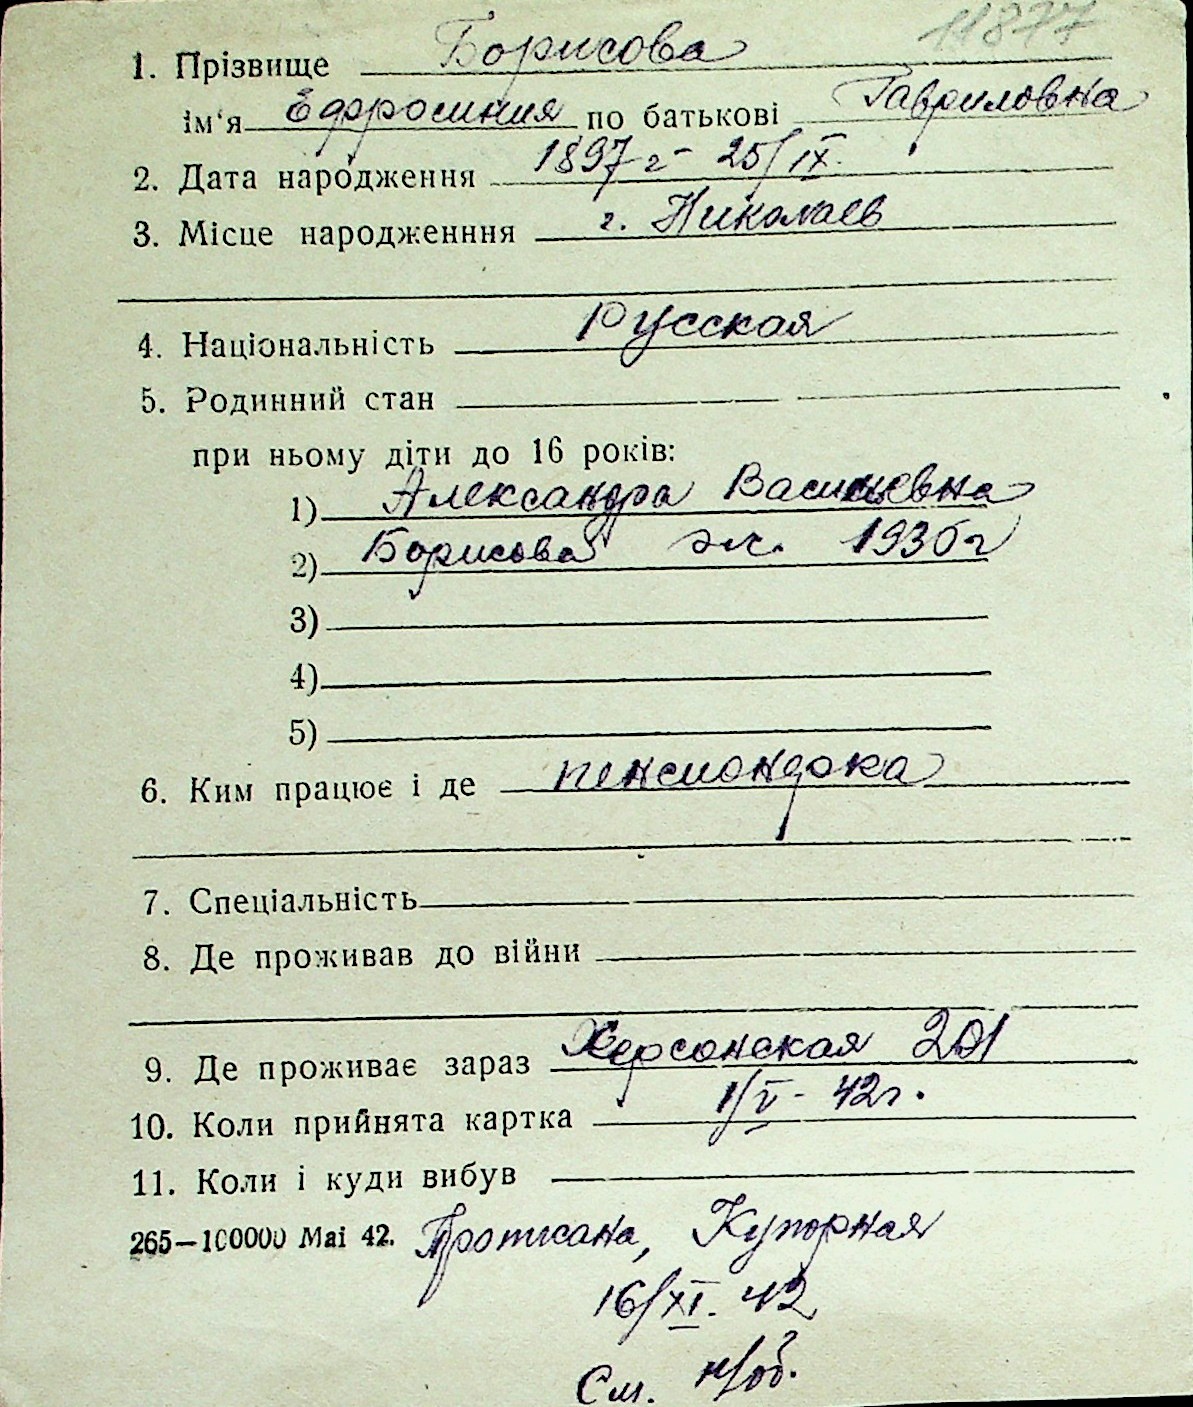 11877
1. Прізвище Борисова
ім'я Ефросиния по батькові Гавриловна
2. Дата народження 1897 г- 25/IX.
3. Місце народженння г. Николаев
4. Національність Русская
5. Родинний стан
при ньому діти до 16 років:
1) Александра Васильевна
2) Борисова 1930г
3)
4)
5)
6. Ким працює і де пенсионерка
7. Спеціальність
8. Де проживав до війни
9. Де проживає зараз Херсонская 201
10. Коли прийнята картка 1/V- 42г.
11. Коли і куди вибув
265—100000 Mai 42. Купорная
16/XI. 42
См. н/об.